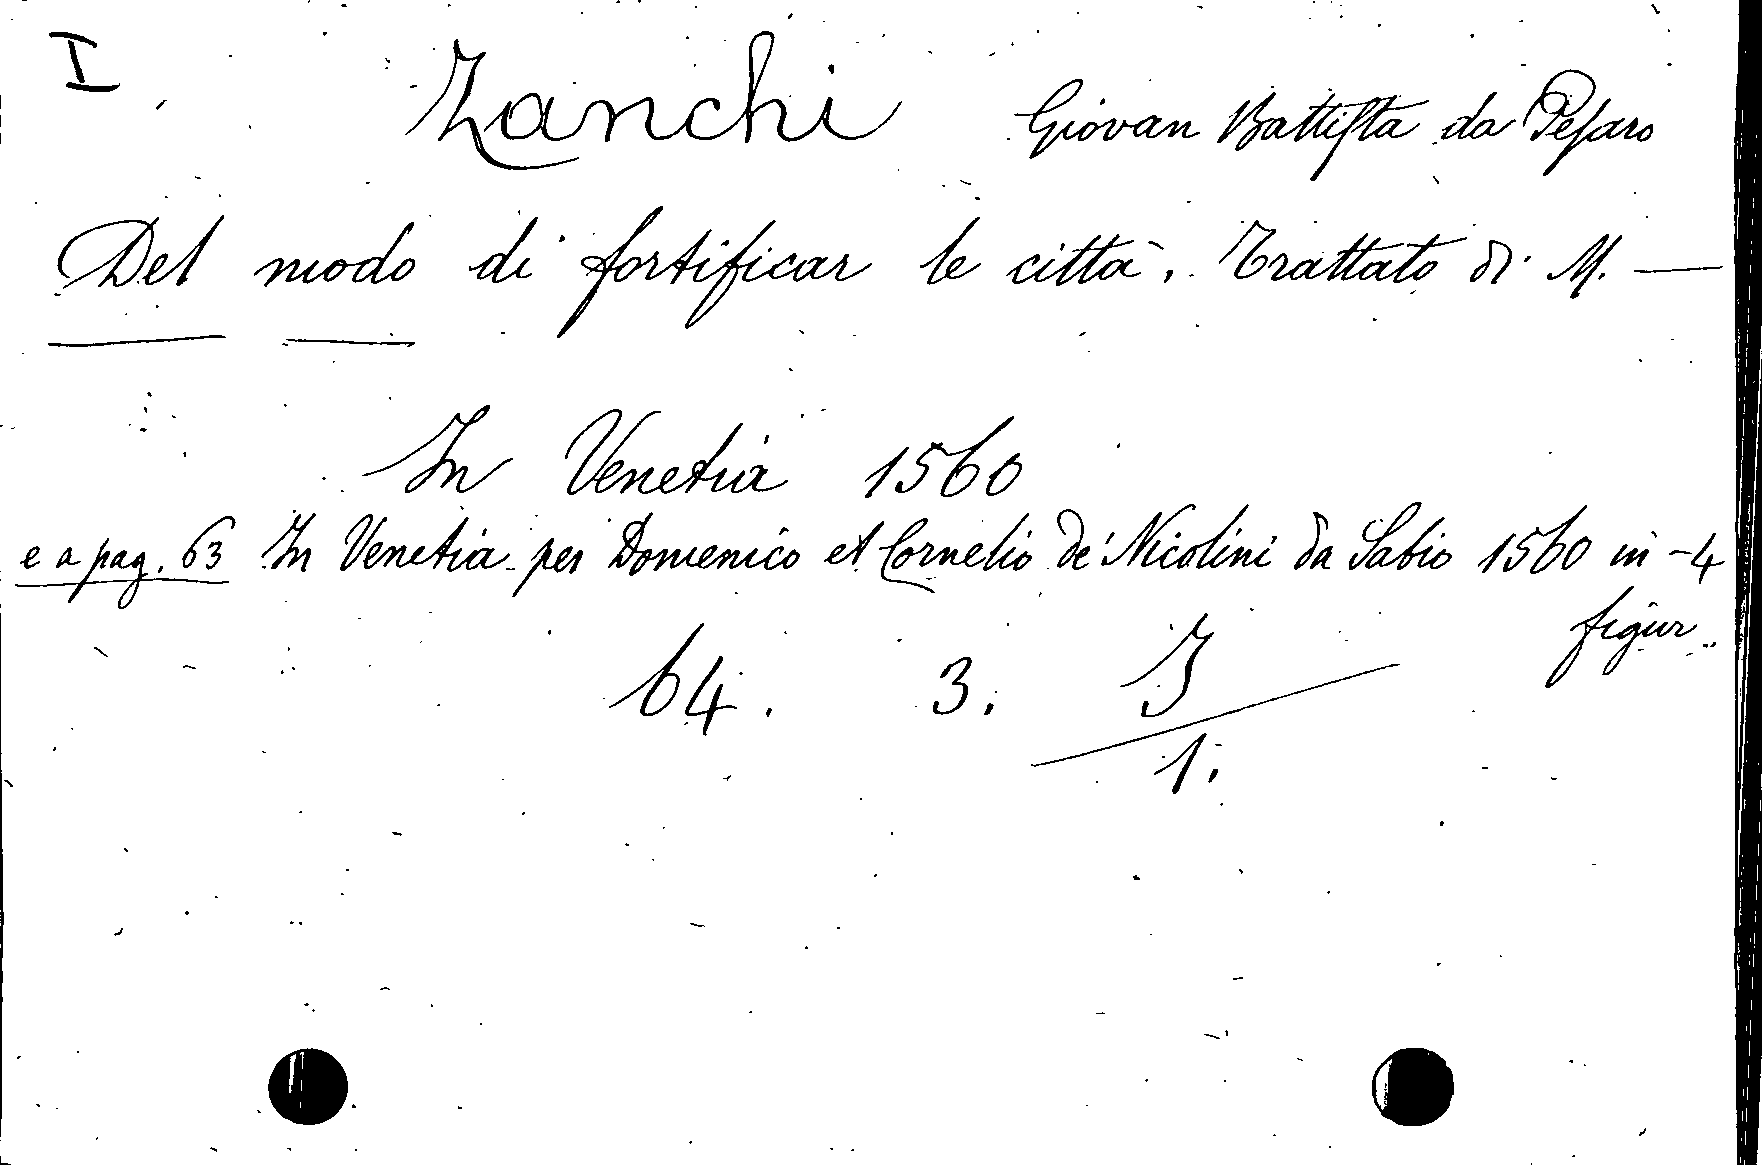 I
Zanchi Giovan Battista da Pesaro
Del modo di fortificar le città. Trattato di M. —
— —
In Venetia 1560
e a pag. 63 In Venetia per Domenico et Cornelio de' Nicolini da Sabio 1560 in-4
figur.
64. 3. I
1.